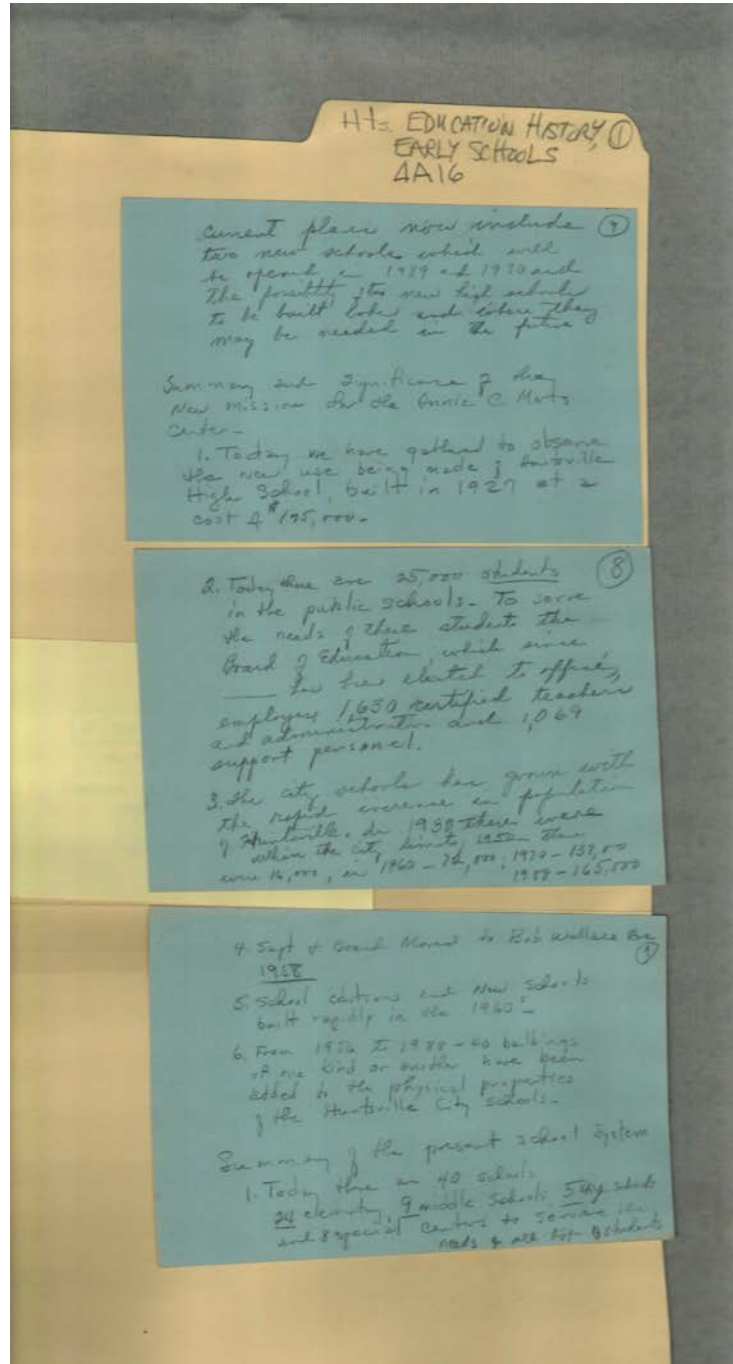 Hts. EDUCATION HISTORY, ①
EARLY SCHOOLS
4A16
Current plans now include ⑨
two new schools which will
be opened in 1989 and 1990 and
the possibility two new high schools
to be built later and where they
may be needed in the future
Summary and Significance of the
New mission for the Annie C Merts
Center -
1. Today we have gathered to observe
the new use being made of Huntsville
High School, built in 1927 at a
cost of $195,000 -
2. Today there are 25,000 students ⑧
in the public schools. To serve
the needs of these students the
Board of Education which since
____ has been elected to office,
employees 1,630 certified teachers
and administrators and 1,069
support personel.
3. The city schools has grown with
the rapid increase in population
of Huntsville. In 1938 there were
within the city limits 1950 - there
were 16,000, in 1960 - 72,000, 1970 - 137,000
1988 - 165,000
4. Supt & Board Moved to Bob Wallace Ave
1958
5. School additions and New Schools
built rapidly in the 1960s -
6. From 1956 to 1988 - 40 buildings
of one kind or another have been
added to the physical properties
of the Huntsville City schools -
Summary of the present school System
1. Today there are 40 schools
24 elementary, 9 middle schools, 5 high schools
and 8 special centers to service the
needs of all students